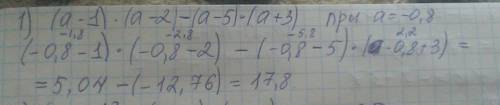 1) (a-1)·(a-2)-(a-5)·(a+3) при a=-0,8
-1,8 -2,8 -5,8 2,2
(-0,8-1)·(-0,8-2) - (-0,8-5)·(-0,8+3) =
= 5,04 - (-12,76) = 17,8